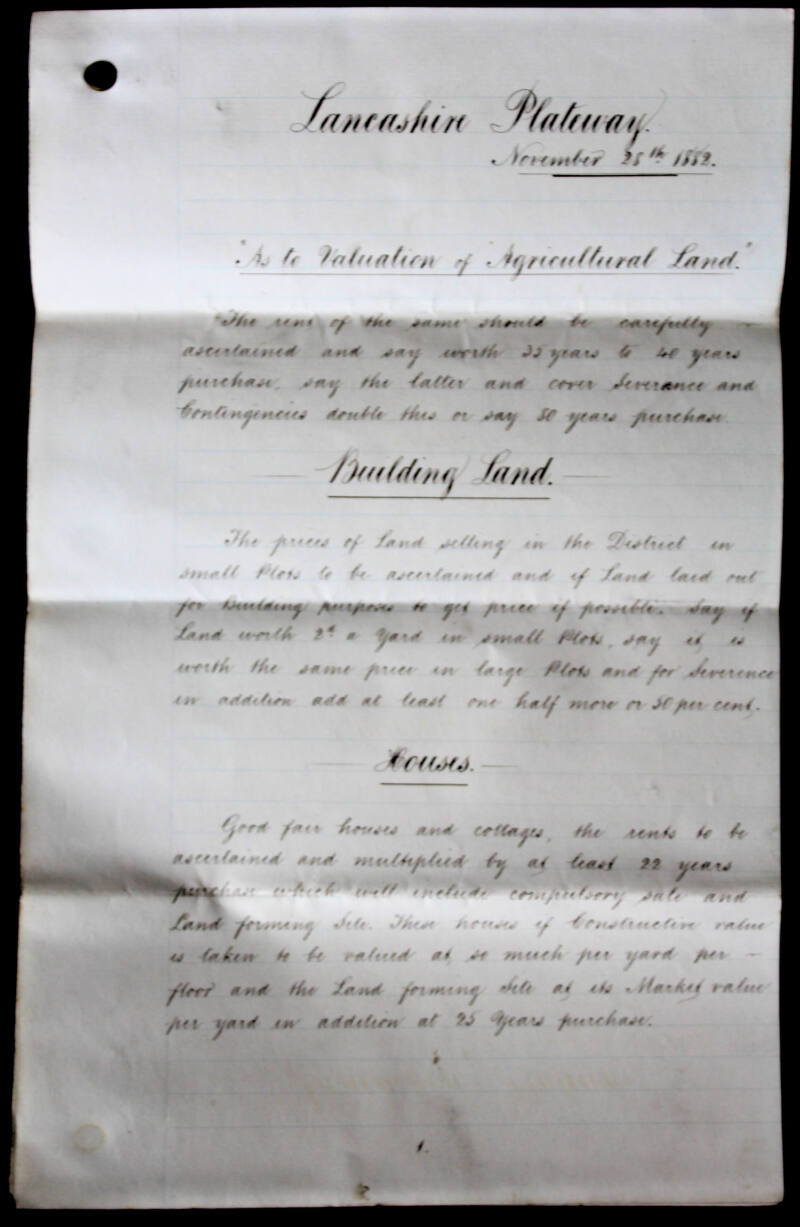 Lancashire Plateway.
November 28th 1882.
"As to Valuation of Agricultural Land."
"The rent of the same should be carefully –
ascertained and say worth 35 years to 40 years
purchase, say the latter and cover Severance and
Contingencies double this or say 80 years purchase.
Building Land.
The prices of Land selling in the District in
small Plots to be ascertained and if Land laid out
for Building purposes to get price if possible. Say if
Land worth 2d a Yard in small Plots, say it is
worth the same price in large Plots and for Severence
in addition add at least one half more or 50 per cent.
Houses.
Good fair houses and cottages, the rents to be
ascertained and multiplied by at least 22 years
purchase which will include compulsory sale and
Land forming Site. These houses if Constructive value
is taken to be valued at so much per yard per –
floor and the Land forming Site at its Market value
per yard in addition at 25 Years purchase.
1.